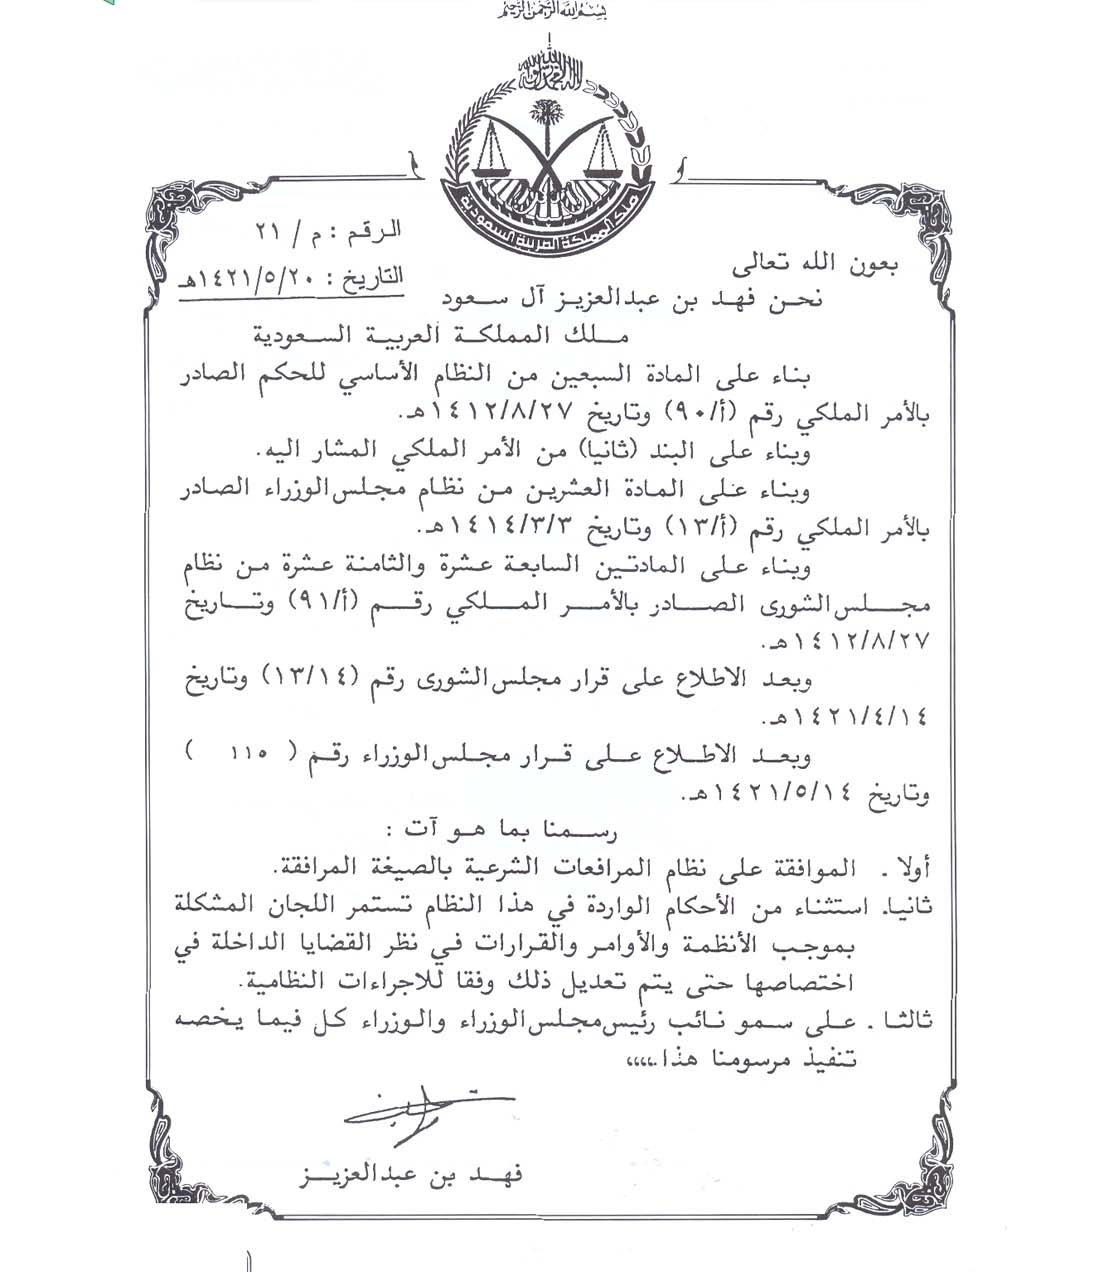 بسم الله الرحمن الرحيم
لا إله إلا الله محمد رسول الله
ملك المملكة العربية السعودية
الرقم : م / ٢١
التاريخ : ١٤٢١/٥/٢٠هـ
بعون الله تعالى
نحن فهد بن عبدالعزيز آل سعود
ملك المملكة العربية السعودية
بناء على المادة السبعين من النظام الأساسي للحكم الصادر
بالأمر الملكي رقم (أ/٩٠) وتاريخ ١٤١٢/٨/٢٧هـ.
وبناء على البند (ثانيا) من الأمر الملكي المشار اليه.
وبناء على المادة العشرين من نظام مجلس الوزراء الصادر
بالأمر الملكي رقم (أ/١٣) وتاريخ ١٤١٤/٣/٣هـ.
وبناء على المادتين السابعة عشرة والثامنة عشرة من نظام
مجلس الشورى الصادر بالأمر الملكي رقم (أ/٩١) وتاريخ
١٤١٢/٨/٢٧هـ.
وبعد الاطلاع على قرار مجلس الشورى رقم (١٣/١٤) وتاريخ
١٤٢١/٤/١٤هـ.
وبعد الاطلاع على قرار مجلس الوزراء رقم ( ١١٥ )
وتاريخ ١٤٢١/٥/١٤هـ.
رسمنا بما هو آت :
أولا . الموافقة على نظام المرافعات الشرعية بالصيغة المرافقة.
ثانيا. استثناء من الأحكام الواردة في هذا النظام تستمر اللجان المشكلة
بموجب الأنظمة والأوامر والقرارات في نظر القضايا الداخلة في
اختصاصها حتى يتم تعديل ذلك وفقا للاجراءات النظامية.
ثالثا . على سمو نائب رئيس مجلس الوزراء والوزراء كل فيما يخصه
تنفيذ مرسومنا هذا.،،،،
فهد بن عبدالعزيز